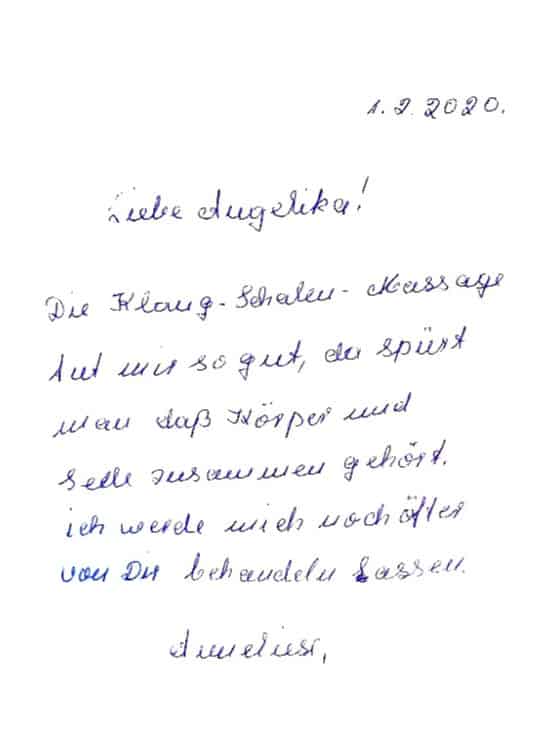 1.2.2020.
Liebe Angelika!
Die Klang-Schalen-Massage
tut mir so gut, da spürt
man daß Körper und
Seele zusammen gehört.
ich werde mich noch öfter
von Dir behandeln lassen.
Anneliese,